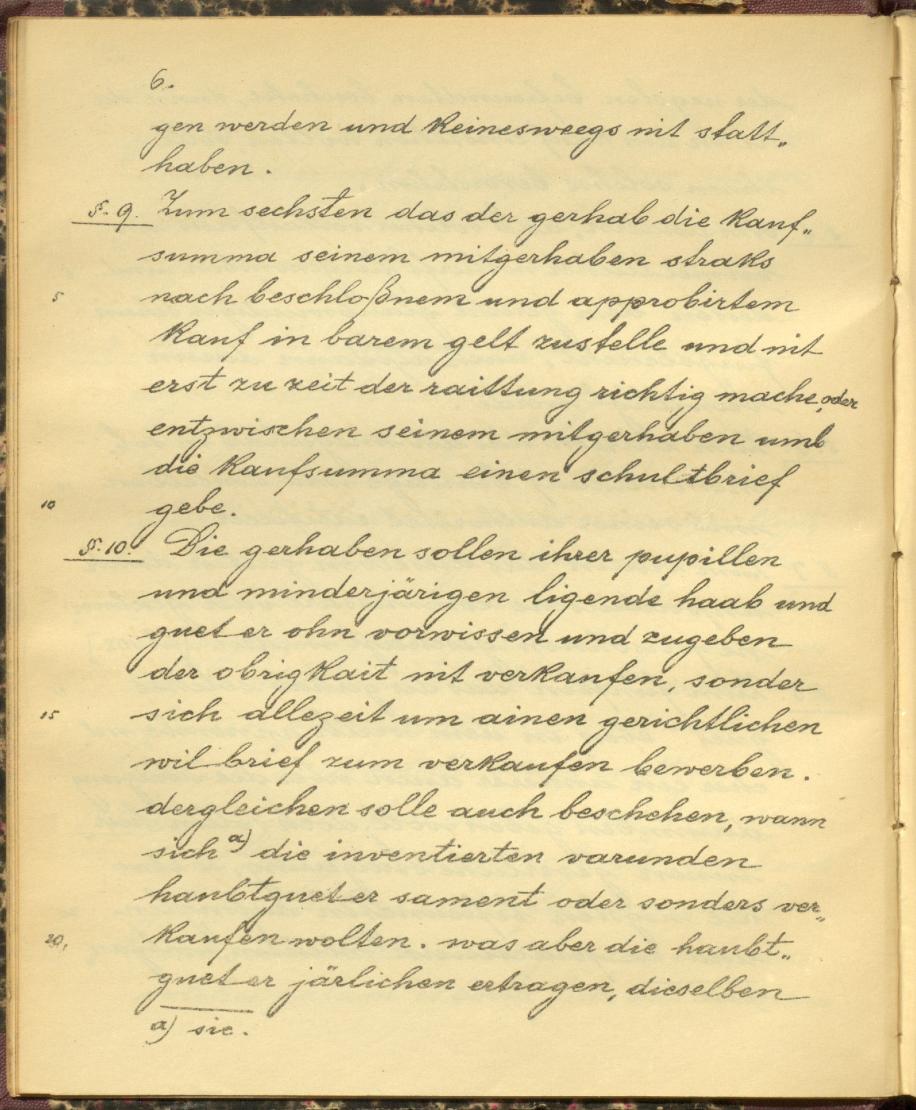 6.
gen werden und keineswegs nit statt„
haben.
§. 9. Zum sechsten das der gerhab die kauf„
summa seinem mitgerhaben straks
5 nach beschloßnem und approbirtem
kauf in barem gelt zustelle und nit
erst zu zeit der raittung richtig mache, oder
entzwischen seinem mitgerhaben umb
die kaufsumma einen schultbrief
10 gebe.
§. 10. Die gerhaben sollen ihrer pupillen
und minderjärigen ligende haab und
gueter ohn vorwissen und zugeben
der obrigkait nit verkaufen, sonder
15 sich allezeit um ainen gerichtlichen
wilbrief zum verkaufen bewerben.
dergleichen solle auch beschehen, wann
sich a) die inventierten varunden
haubtgueter sament oder sonders ver„
20. kaufen wolten. was aber die haubt„
gueter järlichen ertragen, dieselben
a) sic.